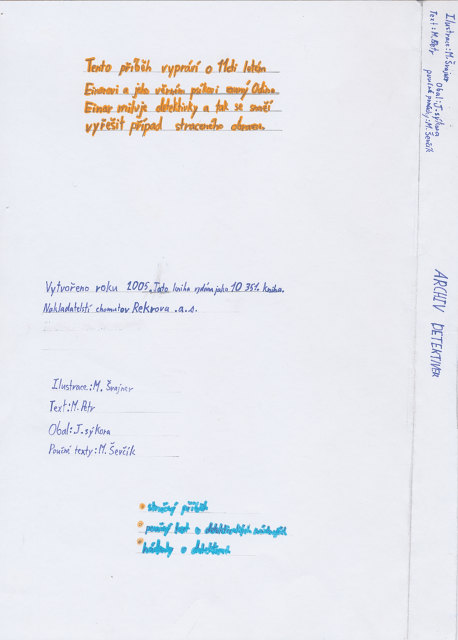 Tento příběh vypráví o 11ti letém
Einarovi a jeho věrném
Einar miluje detektivky a tak se snaží
vyřešit případ straceného obrazu.
Vytvořeno roku 1005. Tato kniha vydána jako 10 351. kniha.
Nakladatelství chomutov Rekrova .a.s.
Ilustrace: M. Švajner
Text: M. Petr
Obal: J. sýkora
Poučné texty: M. Ševčík
stručný příběh
poučný text o detektivních
hádanky o detektivech
Ilustrace: M. Švajner
Text: M. Petr
Obal: J. sýkora
poučné texty: M. Ševčík
ARCHIV DETEKTIVEK